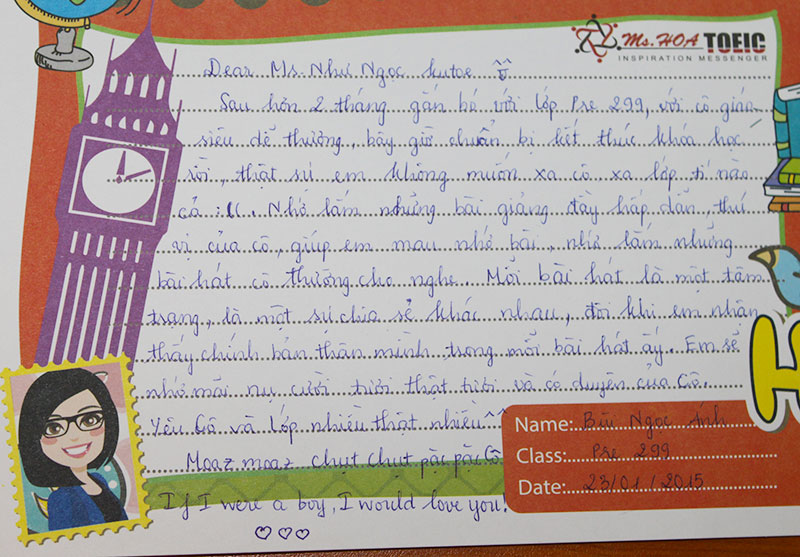 Ms. HOA TOEIC
INSPIRATION MESSENGER
Dear Ms. Như Ngọc kutoe ^^
Sau hơn 2 tháng gắn bó với lớp Pre 299, với cô giáo
siêu dễ thương, bây giờ chuẩn bị kết thúc khóa học
rồi, thật sự em không muốn xa cô xa lớp tí nào
cả :((. Nhớ lắm những bài giảng đầy hấp dẫn, thú
vị của cô, giúp em mau nhớ bài, nhớ lắm những
bài hát cô thường cho nghe. Mỗi bài hát là một tâm
trạng, là một sự chia sẻ khác nhau, đôi khi em nhận
thấy chính bản thân mình trong mỗi bài hát ấy. Em sẽ
nhớ mãi nụ cười tươi thật tươi và có duyên của Cô.
Yêu Cô và lớp nhiều thật nhiều ^^
Moaz moaz chụt chụt pặc pặc Cô
If I were a boy, I would love you!
♡♡♡
Name: Bùi Ngọc Ánh
Class: Pre 299
Date: 23/01/2015